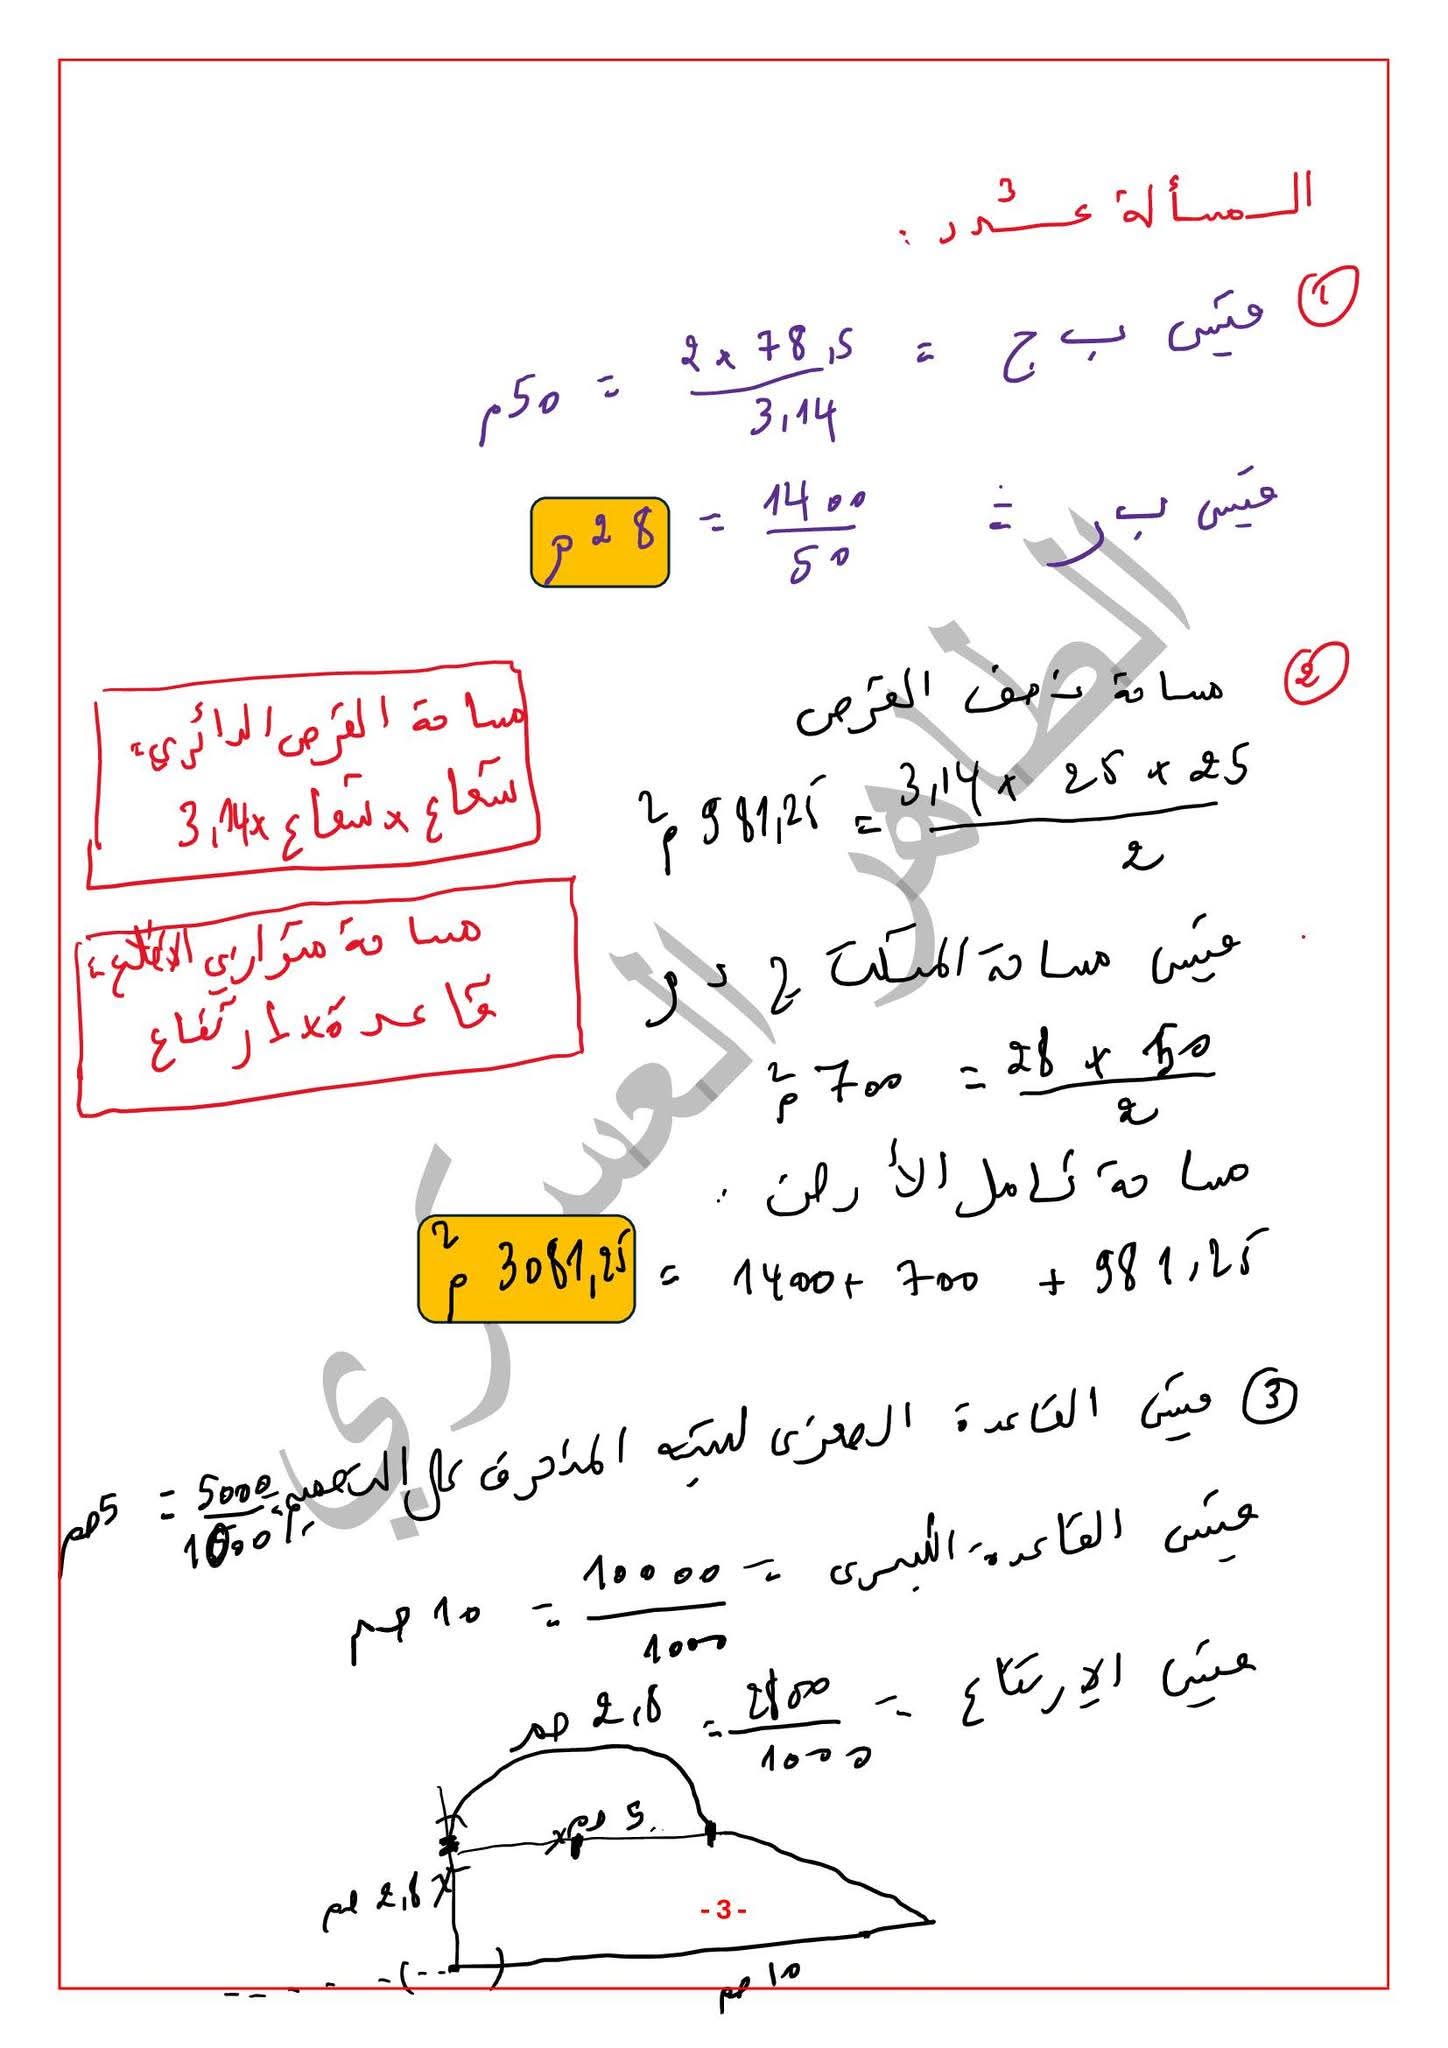 المسألة عدد 3 :
1
قيس ب ج = 2 x 78,5 / 3,14 = 50 م
قيس ب ر = 1400 / 50 = 28 م
2
مساحة نصف القرص
3,14 x 25 x 25 / 2 = 981,25 م2
مساحة القرص الدائري =
شعاع x شعاع x 3,14
مساحة متوازي الأضلاع =
قاعدة x ارتفاع
قيس مساحة المثلث
28 x 50 / 2 = 700 م2
مساحة كامل الأرض :
981,25 + 700 + 1400 = 3081,25 م2
3 قيس القاعدة الصغرى لشبه المنحرف على التصميم = 5000 / 1000 = 5 صم
قيس القاعدة الكبرى = 10000 / 1000 = 10 صم
قيس الارتفاع = 2800 / 1000 = 2,8 صم
5 صم
2,8 صم
10 صم
- 3 -
الطاهر العسكري